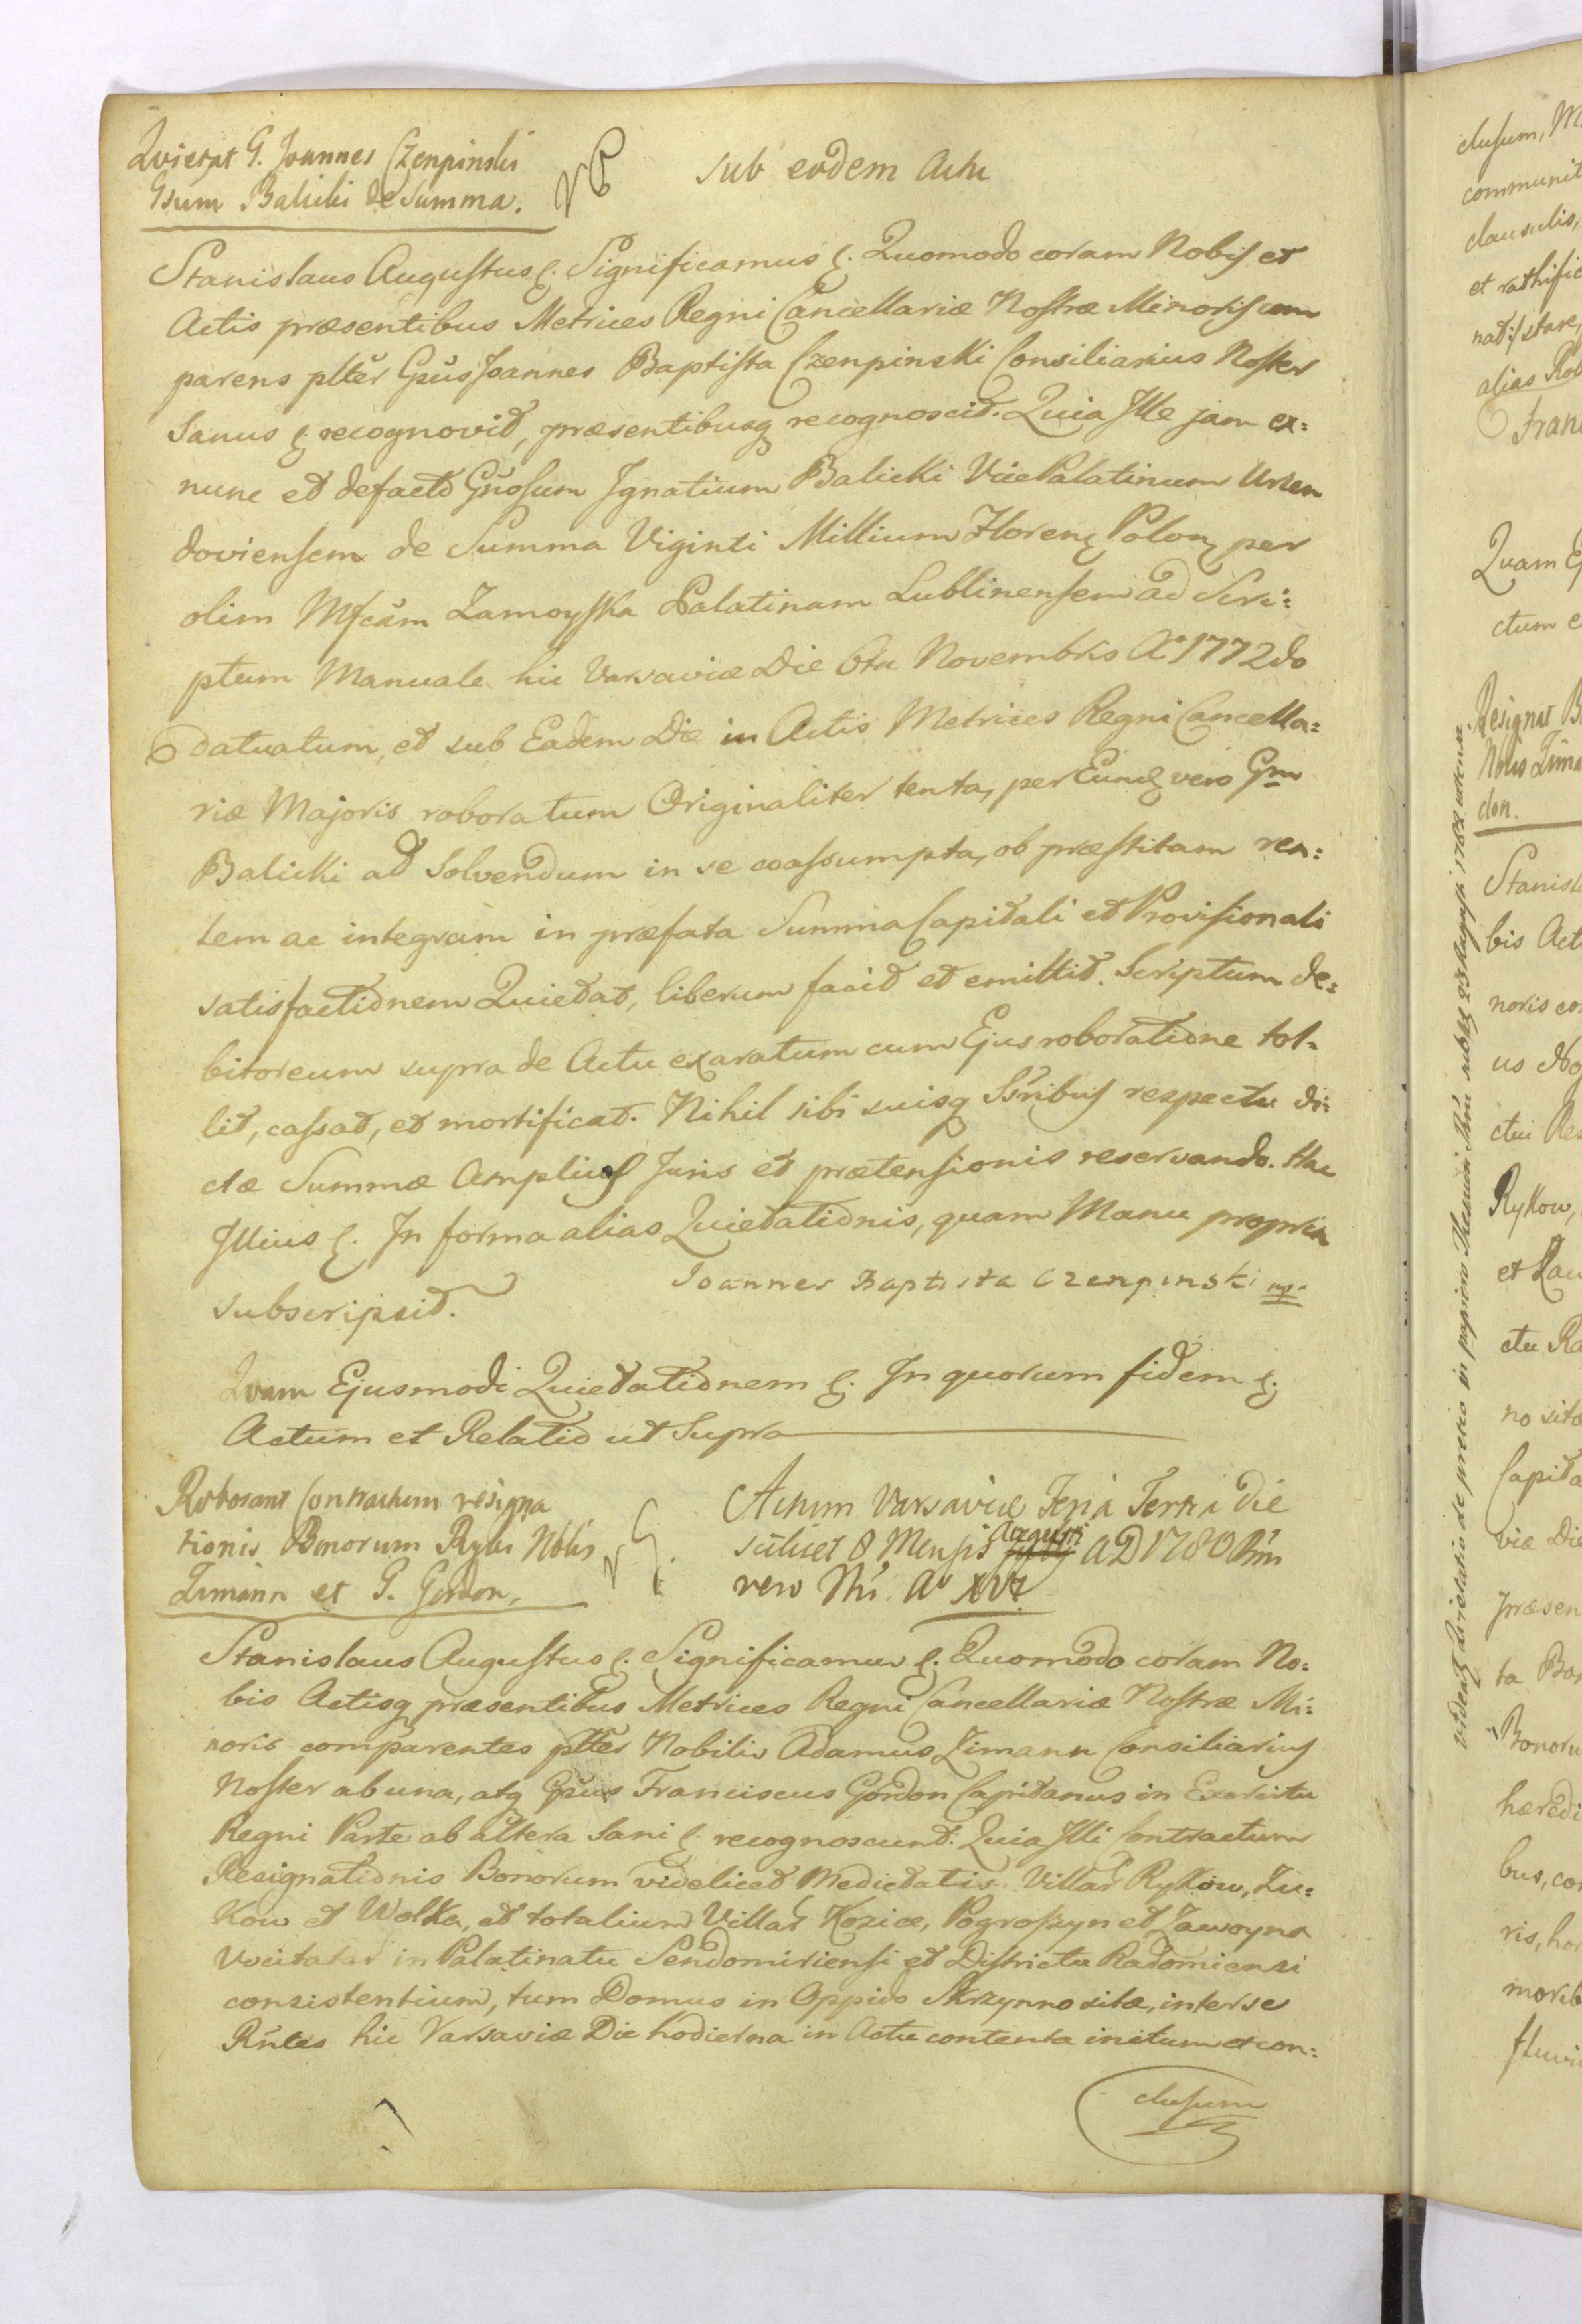 Quietat G. Joannes Czenpinski
Gsum Balicki de Summa.
Sub eodem Actu
Stanislaus Augustus &. Significamus &. Quomodo coram Nobis et
Actis præsentibus Metrices Regni Cancellariæ Nostræ Minoris com
parens plter Gsus Joannes Baptista Czenpinski Consiliarius Noster
Sanus & recognovit, præsentibusq recognoscit. Quia Ille jam ex=
nunc et defacto Gnosum Ignatium Balicki VicePalatinum Urzen
doviensem de Summa Viginti Millium Floren Polon per
olim Mfcam Zamoyska Palatinam Lublinensem ad Scri=
ptum Manuale hic Varsaviæ Die 6ta Novembris Ao 1772do
datuatum, et sub Eadem Die in Actis Metrices Regni Cancella=
riæ Majoris roboratum Originaliter tenta, per Eund vero Gm
Balicki ad Solvendum in se coassumpta, ob præstitam rea=
lem ac integram in præfata Summa Capitali et Provisionali
satisfactionem Quietat, liberum facit et emittit. Scriptum de=
bitoreum supra de Actu exaratum cum Ejus roboratione tol=
lit, cassat, et mortificat. Nihil sibi suisq Ssribus respectu di=
ctæ Summæ Amplius Juris et prætensionis reservando. Hac
Illius &. In forma alias Quietationis, quam Manu propria
subscripsit.
Joannes Baptista Czenpinski mp.
Quam Ejusmodi Quietationem &. In quorum fidem &.
Actum et Relatio ut Supra
Roborant Contractum resigna
tionis Bonorum Ryki Nblis
Zimann et G. Gordon.
Actum Varsaviæ Feria Tertia Die
scilicet 8 Mensis Augusti AD 1780 Rni
vero Nri Ao XVI
Stanislaus Augustus &. Significamus &. Quomodo coram No=
bis Actisq præsentibus Metrices Regni Cancellariæ Nostræ Mi=
noris comparentes plter Nobilis Adamus Zimann Consiliarius
Noster ab una, atq Gsus Franciscus Gordon Capitanus in Exercitu
Regni Parte ab altera Sani &. recognoscunt. Quia Illi Contractum
Resignationis Bonorum videlicet Medietatis Villar Rykow, Zu=
kow et Wolka, et totalium Villar Kozice, Pogroszyn et Zawoyna
vocitatar in Palatinatu Sendomiriensi et Districtu Radomiensi
consistentium, tum Domus in Oppido Skrzynno sitæ, inter se
Rntes hic Varsaviæ Die hodierna in Actu contenta initum et con=
clusum
clusum, M
communit
clausulis,
nat: stare,
alias Rob
Fran
Quam Ej
ctum e
Resignat B
Nblis Zima
don.
Stanisla
bis Act
noris co
us No
ctui Res
Rykow,
ctu Ra
no sitæ
Capita
viæ Die
præsen
ta Bo
Bonoru
hæredi
bus, co
ris, ho